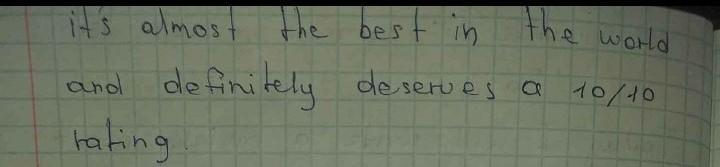 it's almost the best in the world
and definitely deserves a 10/10
rating.